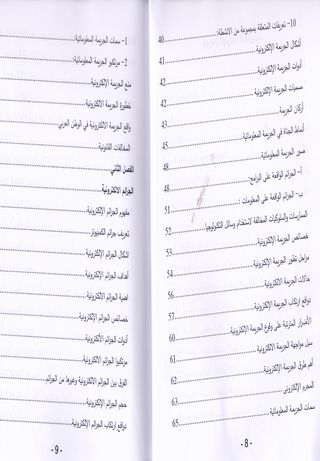 10- تعريفات المتعلقة بمجموعة من الانشطة: 40
أشكال الجريمة الإلكترونية 41
أدوات الجريمة الإلكترونية 42
مسميات الجريمة الإلكترونية 42
أركان الجريمة 43
أنماط الجناة في الجريمة المعلوماتية 45
صور الجريمة المعلوماتية 48
أ- الجرائم الواقعة على البرامج: 48
ب- الجرائم الواقعة على المعلومات: 51
الممارسات والسلوكيات المخالفة لاستخدام وسائل التكنولوجيا 52
خصائص الجريمة الإلكترونية 53
مراحل تطور الجريمة الإلكترونية 54
حالات الجريمة الإلكترونية 56
دوافع ارتكاب الجريمة الإلكترونية 57
الأضرار المترتبة على وقوع الجريمة الإلكترونية 60
سبل مواجهة الجريمة الإلكترونية 61
أهم طرق الجريمة الإلكترونية 62
المجرم الإلكتروني 63
سمات الجريمة المعلوماتية 65
-8-
1- سمات الجريمة المعلوماتية:
2- مرتكبو الجريمة المعلوماتية:
منع الجريمة الإلكترونية
خطورة الجريمة الالكترونية
واقع الجريمة الالكترونية في الوطن العربي
المخالفات القانونية
الفصل الثاني
الجرائم الالكترونية
مفهوم الجرائم الإلكترونية
تعريف جرائم الكمبيوتر
اشكال الجرائم الإلكترونية
أهداف الجرائم الإلكترونية
اهمية الجرائم الالكترونية
خصائص الجرائم الإلكترونية
أدوات الجرائم الألكترونية
مرتكبوا الجرائم الالكترونية
الفرق بين الجرائم الالكترونية وغيرها من الجرائم
حجم الجرائم الإلكترونية
دوافع ارتكاب الجرائم الإلكترونية
-9-